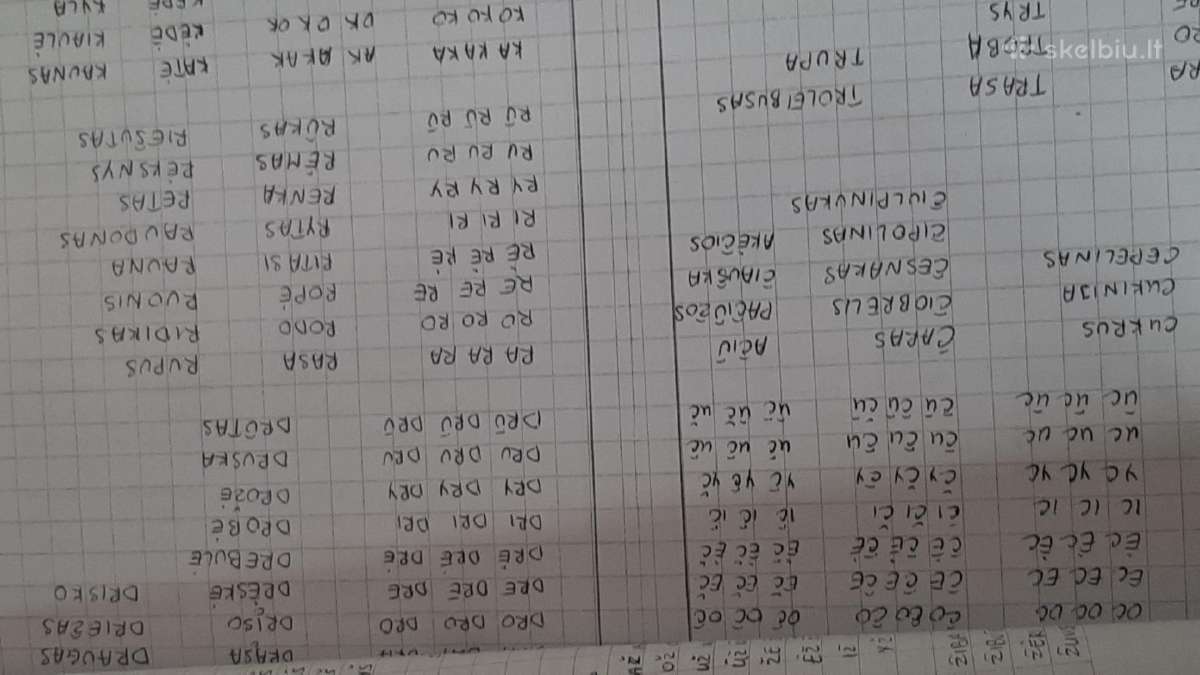 OC OC OC ČO ČO ČO OČ OČ OČ
EC EC EC ČE ČE ČE EČ EČ EČ
ĖC ĖC ĖC ČĖ ČĖ ČĖ ĖČ ĖČ ĖČ
IC IC IC ČI ČI ČI IČ IČ IČ
YC YC YC ČY ČY ČY YČ YČ YČ
UC UC UC ČU ČU ČU UČ UČ UČ
ŪC ŪC ŪC ČŪ ČŪ ČŪ ŪČ ŪČ ŪČ
CUKRUS ČARAS AČIŪ
CUKINIJA ČIOBRELIS PAČIŪŽOS
CEPELINAS ČESNAKAS ČIAUŠKA
ČIPOLINAS AKĖČIOS
ČIULPINUKAS
TRASA TROLEIBUSAS
TRUPA
TRYS
DRĄSA DRAUGAS
DRO DRO DRO DRĮSO DRIEŽAS
DRE DRE DRE DRĖSKĖ DRISKO
DRĖ DRĖ DRĖ DREBULĖ
DRI DRI DRI DROBĖ
DRY DRY DRY DROŽĖ
DRU DRU DRU DRUSKA
DRŪ DRŪ DRŪ DRŪTAS
RA RA RA RASA RUPUS
RO RO RO RODO RIDIKAS
RE RE RE ROPĖ RUONIS
RĖ RĖ RĖ RITASI RAUNA
RI RI RI RYTAS RAUDONAS
RY RY RY RENKA RETAS
RU RU RU RĖMAS RĖKSNYS
RŪ RŪ RŪ RŪKAS RIEŠUTAS
KA KA KA AK AK AK KATĖ KAUNAS
KO KO KO OK OK OK KĖDĖ KIAULĖ
KYLA
skelbiu.lt